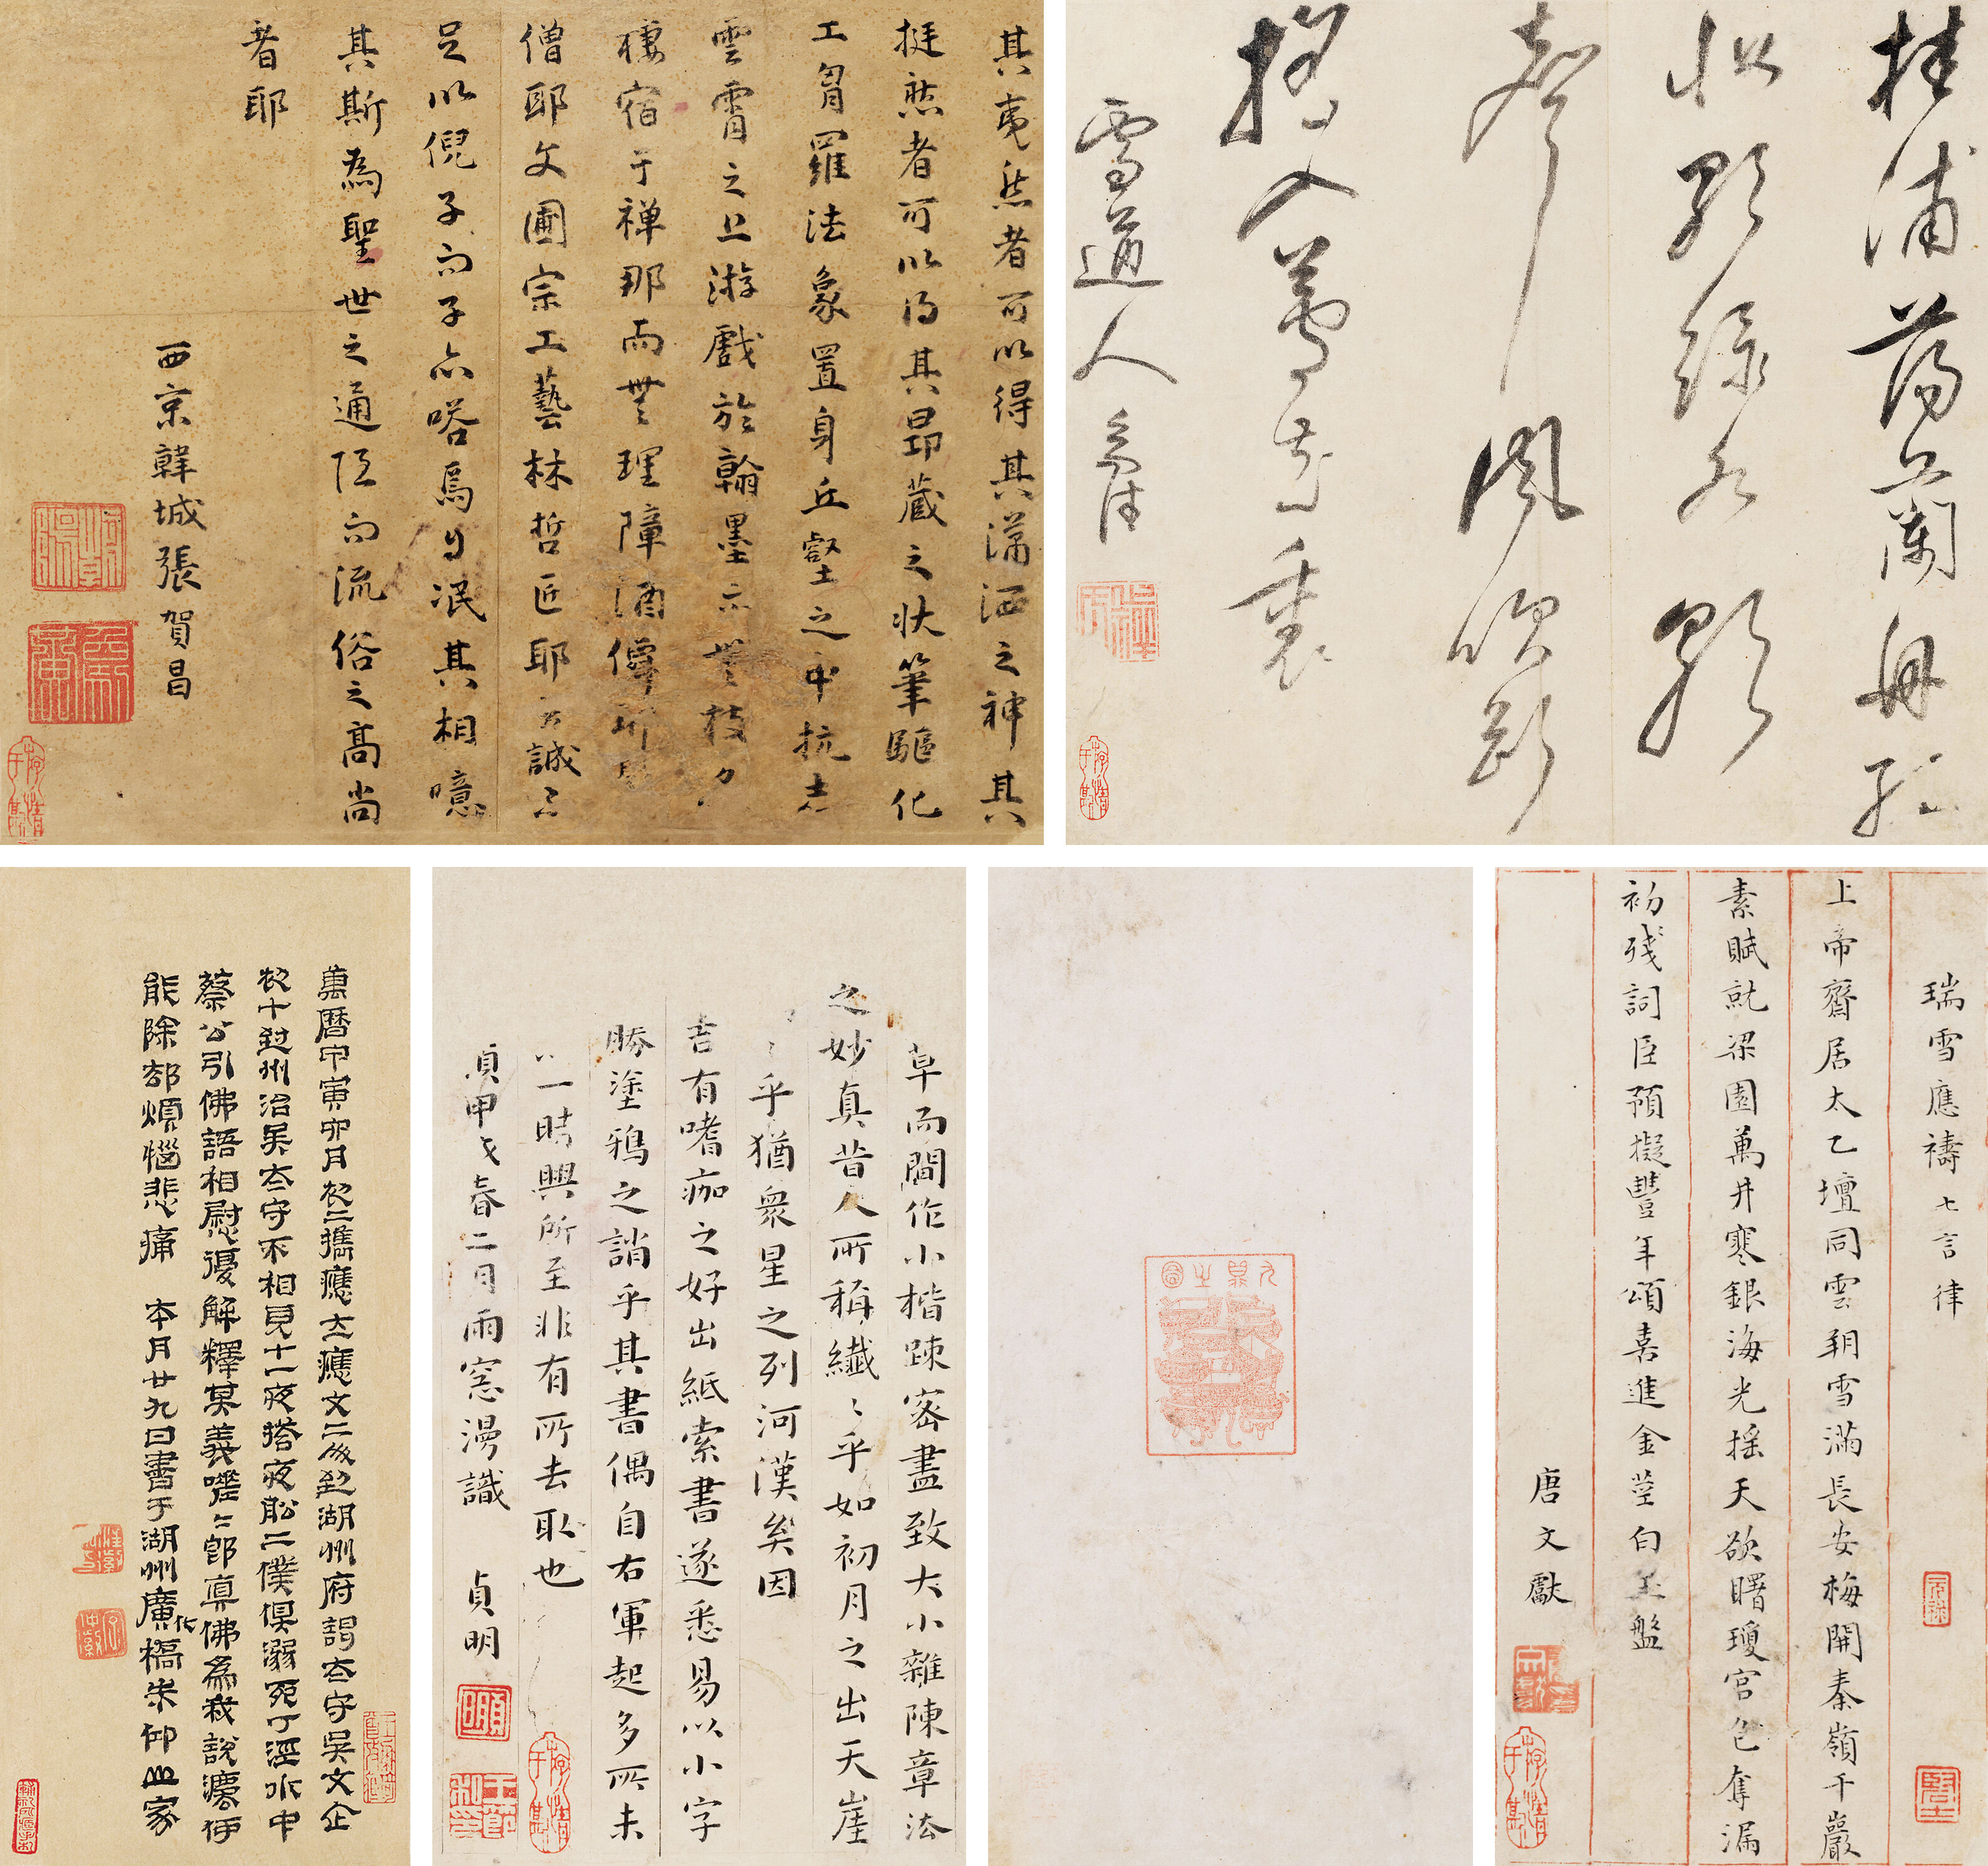 桂浦蕩蘭舟弘
似歌綠水歌
聲風吹斷
搖入蘆花裏
雪道人
其夷然者可以得其瀟洒之神其
挺然者可以得其昂藏之狀筆驅化
工胷羅法象置身丘壑之中抗志
雲霄之上游戲於翰墨亦無技
棲宿于禪那而無理障酒僊耶
僧耶文圃宗工藝林哲匠耶誠
足以倪子而子亦嗒焉自泯其相噫
其斯為聖世之通臣而流俗之高尚
者耶
西京韓城張賀昌
瑞雪應禱七言律
上帝齋居太乙壇同雲朝雪滿長安梅開秦嶺千巖
素賦就梁園萬井寒銀海光搖天欲曙瓊宮色奪漏
初殘詞臣預擬豐年頌喜進金莖白玉盤
唐文獻
草而間作小楷疎密盡致大小雜陳章法
之妙真昔人所稱纖〻乎如初月之出天崖
〻乎猶衆星之列河漢矣因
吉有嗜痂之好出紙索書遂悉易以小字
勝塗鴉之誚乎其書偶自右軍起多所未
以一時興所至非有所去取也
貞甲戌春二月雨窓漫識 貞明
萬曆甲寅卯月初二攜應士應文二到湖州府謁太守吳文企
初十到州治吳太守不相見十一夜搭夜船二僕俱溺死丁涇水中
蔡公引佛語相慰復解釋某義嗟〻郎真佛為我說法何
能除卻煩惱悲痛 本月廿九日書于湖州廣化橋朱仰山家